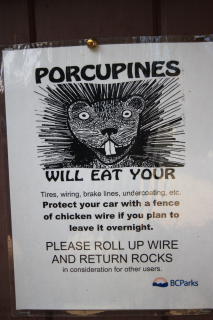 PORCUPINES
WILL EAT YOUR
Tires, wiring, brake lines, undercoating, etc.
Protect your car with a fence
of chicken wire if you plan to
leave it overnight.
PLEASE ROLL UP WIRE
AND RETURN ROCKS
in consideration for other users.
BCParks